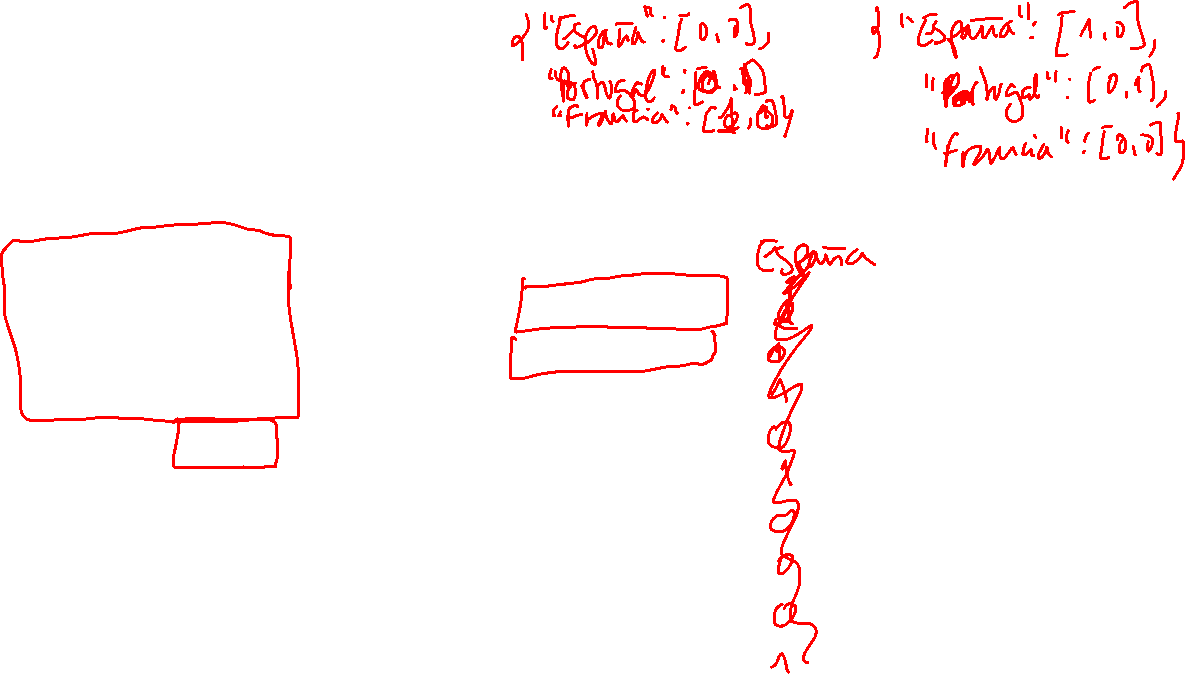 { "España": [0,0],
"Portugal": [0,1]
"Francia": [1,0]}
{ "España": [1,0],
"Portugal": [0,1],
"Francia": [0,0]}
España
0
1
0
1
0
0
0
1